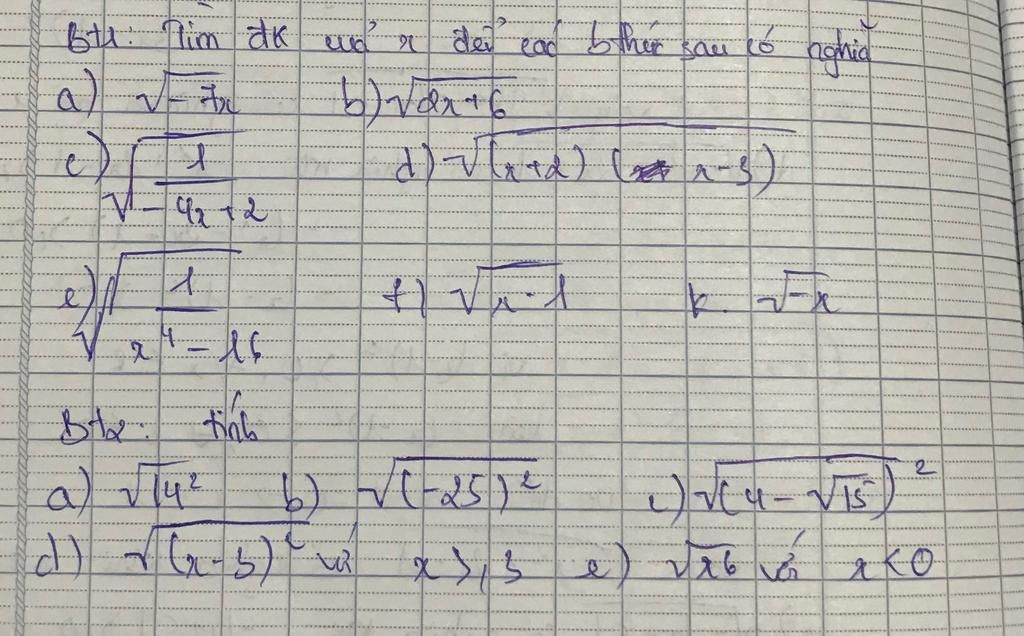 Bt1: Tìm đk của x để các bthức sau có nghĩa
a) √-7x b) √2x+6
c) √1/-4x+2 d) √(x+2) (x-3)
e) √1/x⁴-16 f) √x-1 k. √-x
Bt2: tính
a) √14² b) √(-25)² c) √(4-√15)²
d) √(x-3)² với x ≥ 3 e) √x6 với x<0